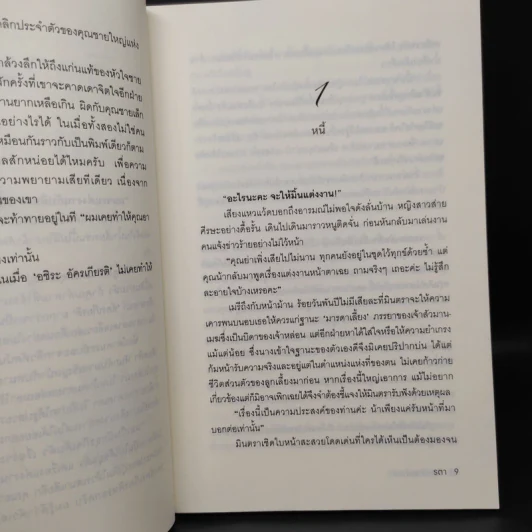 ลิกประจำตัวของคุณชายใหญ่แห่ง
ล้วงลึกให้ถึงแก่นแท้ของหัวใจชาย
ักครั้งที่เขาจะคาดเดาจิตใจอีกฝ่าย
านยากเหลือเกิน ผิดกับคุณชายเล็ก
อย่างไรได้ ในเมื่อทั้งสองไม่ใช่คน
หมือนกันราวกับเป็นพิมพ์เดียวก็ตาม
ลสักหน่อยได้ไหมครับ เพื่อความ
วามพยายามเสียทีเดียว เนื่องจาก
นของเขา
จะท้าทายอยู่ในที “ผมเคยทำให้คุณอา
งเท่านั้น
นเมื่อ ‘อชิระ อัครเกียรติ’ ไม่เคยทำให้
1
หนี้
“อะไรนะคะ จะให้มิ้นแต่งงาน!”
เสียงแหวแว้ดบอกถึงอารมณ์ไม่พอใจดังลั่นบ้าน หญิงสาวส่าย
ศีรษะอย่างดื้อรั้น เดินไปเดินมาราวหนูติดจั่น ก่อนหันกลับมาเล่นงาน
คนแจ้งข่าวร้ายอย่างไม่ไว้หน้า
“คุณย่าเพิ่งเสียไปไม่นาน ทุกคนยังอยู่ในชุดไว้ทุกข์ด้วยซ้ำ แต่
คุณน้ากลับมาพูดเรื่องแต่งงานหน้าตาเฉย ถามจริงๆ เถอะค่ะ ไม่รู้สึก
ละอายใจบ้างเหรอคะ”
เมรีถึงกับหน้าม้าน ร้อยวันพันปีไม่มีเสียละที่มินตราจะให้ความ
เคารพนบนอบเธอให้ควรแก่ฐานะ ‘มารดาเลี้ยง’ ภรรยาของเจ้าสัวมาน-
เมธซึ่งเป็นบิดาของเจ้าหล่อน แต่อีกฝ่ายหาได้ใส่ใจหรือให้ความยำเกรง
แม้แต่น้อย ซึ่งนางเข้าใจฐานะของตัวเองดีจึงมิเคยปริปากบ่น ได้แต่
ก้มหน้ารับความจริงและอยู่แต่ในตำแหน่งแห่งที่ของตน ไม่เคยก้าวก่าย
ชีวิตส่วนตัวของลูกเลี้ยงมาก่อน หากเรื่องนี้ใหญ่เอาการ แม้ไม่อยาก
เกี่ยวข้องแต่ก็มิอาจเพิกเฉยได้จึงจำต้องชี้แจงให้มินตรารับฟังด้วยเหตุผล
“เรื่องนี้เป็นความประสงค์ของท่านค่ะ น้าเพียงแค่รับหน้าที่มา
บอกต่อเท่านั้น”
มินตราเชิดใบหน้าสะสวยโดดเด่นที่ใครได้เห็นเป็นต้องมองจน
รถา 9